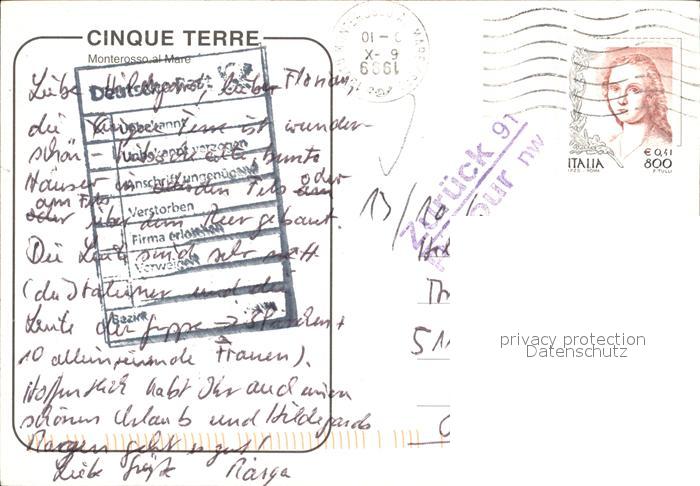 CINQUE TERRE
Monterosso al Mare
Liebe Hildegard, lieber Florian,
die Cinque Terre ist wunder-
schön - bunte
Häuser in den Fels oder
am Fels
oder über dem Meer gebaut.
Die Leute sind sehr nett
(die Italiener und die
Leute der Gruppe →
10 alleinreisende Frauen).
Hoffentlich habt Ihr auch einen
schönen Urlaub und Hildegards
Magen geht es gut!
Liebe Grüße
Deutsche Post
Unbekannt
unbekannt verzogen
Anschrift ungenügend
Verstorben
Firma erloschen
Verweigert
Bezirk
10
6-X
1999
Zurück 91
nw
13/10
ITALIA
€ 0,41
800
F. TULLI
I.P.Z.S. - ROMA
51
privacy protection
Datenschutz